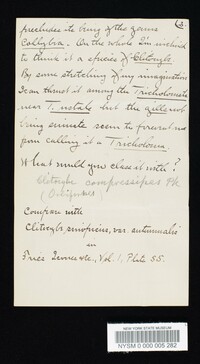 2.
precludes its being of the genus
Collybia. On the whole I'm inclined
to think it a species of Clitocybe.
By some stretching of my imagination
I can thrust it among the Tricholomata
near T. nobile but the gills not
being sinuate seem to prevent me
from calling it a Tricholoma.
What would you class it with?
Clitocybe compressipes Pk
Compare with
Clitocybe pinophila, var. autumnalis
in
Fries Icones etc., Vol. 1, Plate 55.
NEW YORK STATE MUSEUM
NYSM D 000 005 282